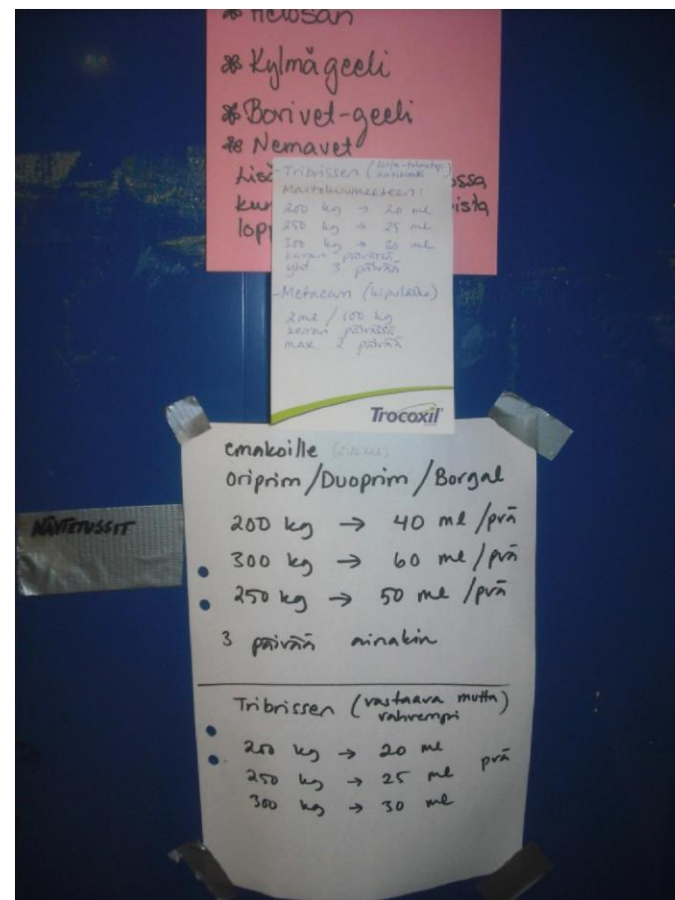 * Helosan
* Kylmägeeli
* Borivet-geeli
* Nemavet
Lisä ossa
kun ista
lopp
-Tribrissen (sulfa-trimetopr.
Maitokuumeeseen:
200 kg → 20 ml
250 kg → 25 ml
300 kg → 30 ml
kerran päivässä
yht 3 päivää
-Metacam (kipulääke)
2ml / 100 kg
kerran päivässä
max 2 päivää
Trocoxil
emakoille
Oriprim/Duoprim/Borgal
NÄYTETUSSIT
200 kg → 40 ml /prä
300 kg → 60 ml /prä
250 kg → 50 ml /prä
3 päivää ainakin
Tribrissen (vastaava mutta)
vahvempi
200 kg → 20 ml
250 kg → 25 ml prä
300 kg → 30 ml